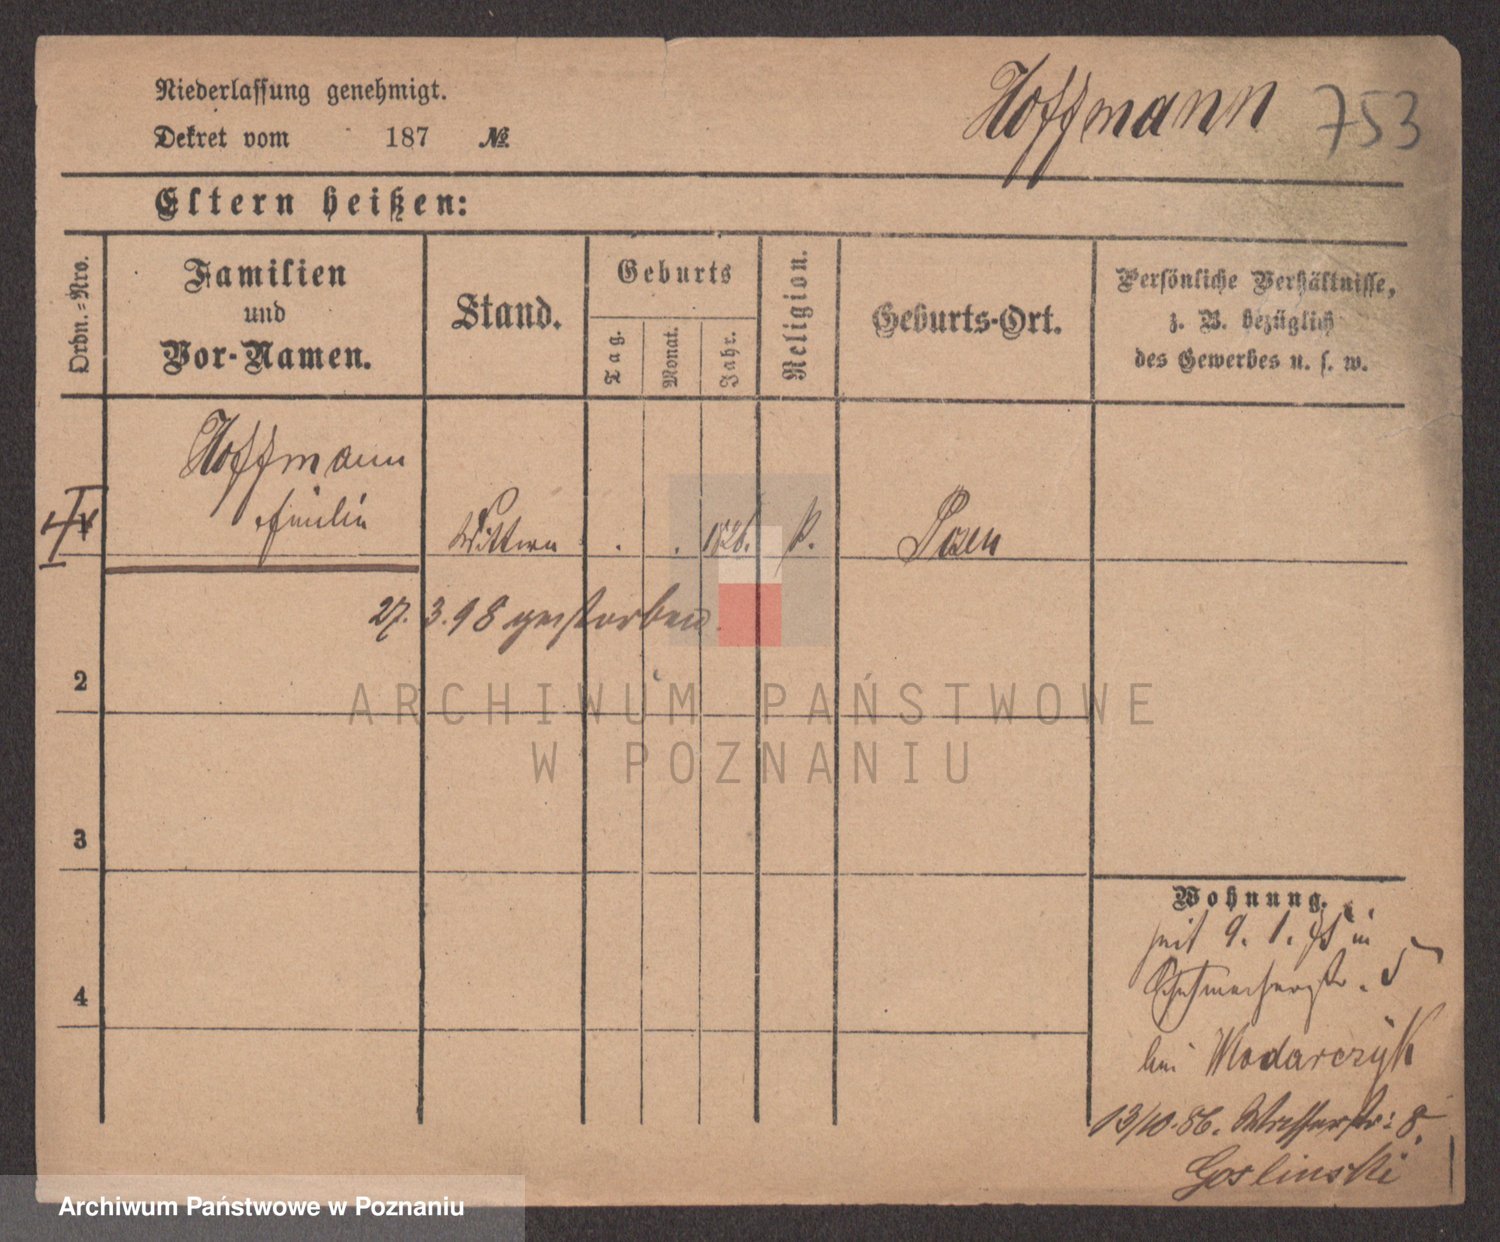 Niederlassung genehmigt.
Dekret vom 187 №
Hoffmann 753
Eltern heißen:
Ordn.-Nro.
Familien
und
Vor-Namen.
Stand.
Geburts
Tag.
Monat.
Jahr.
Religion.
Geburts-Ort.
Persönliche Verhältnisse,
z. B. bezüglich
des Gewerbes u. s. w.
Hoffmann
Emilie
Wittwe . . 1826. k. Posen
27. 3. 98 gestorben
2
3
4
Wohnung.
seit 9. 1. in
5
bei Wodarczyk
13/10. 86. 8.
Goslinski
ARCHIWUM PAŃSTWOWE
W POZNANIU
Archiwum Państwowe w Poznaniu